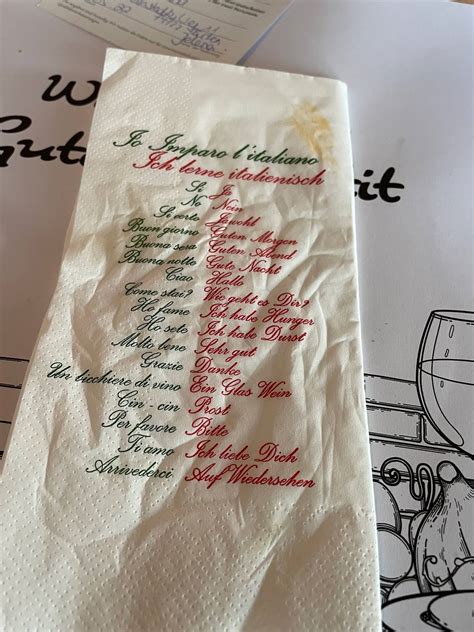 W
Gut it
Io Imparo l'italiano
Ich lerne italienisch
Si Ja
No Nein
Si certo Jawohl
Buon giorno Guten Morgen
Buona sera Guten Abend
Buona notte Gute Nacht
Ciao Hallo
Come stai? Wie geht es Dir?
Ho fame Ich habe Hunger
Ho sete Ich habe Durst
Molto bene Sehr gut
Grazie Danke
Un bicchiere di vino Ein Glas Wein
Cin - cin Prost
Per favore Bitte
Ti amo Ich liebe Dich
Arrivederci Auf Wiedersehen